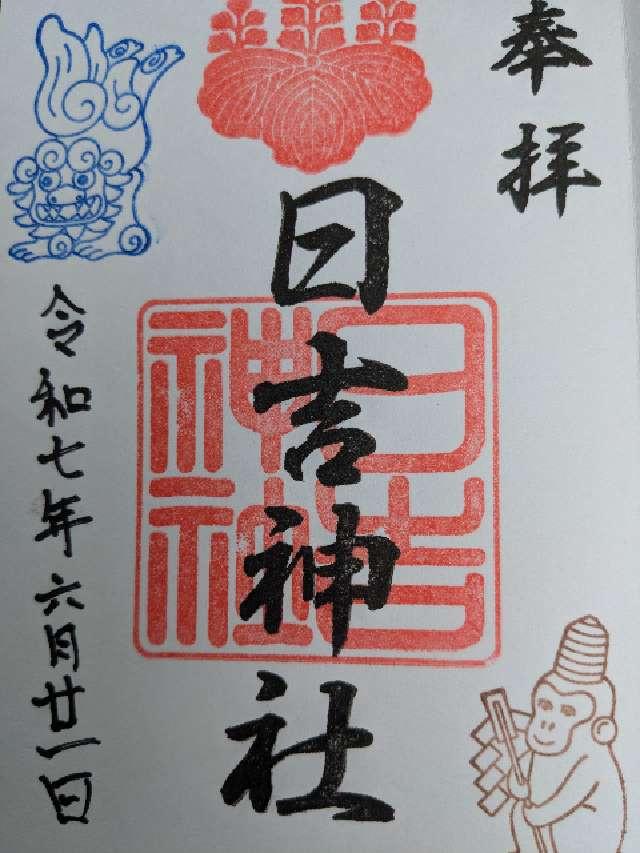 奉拝
日吉神社
日吉神社
令和七年六月廿一日